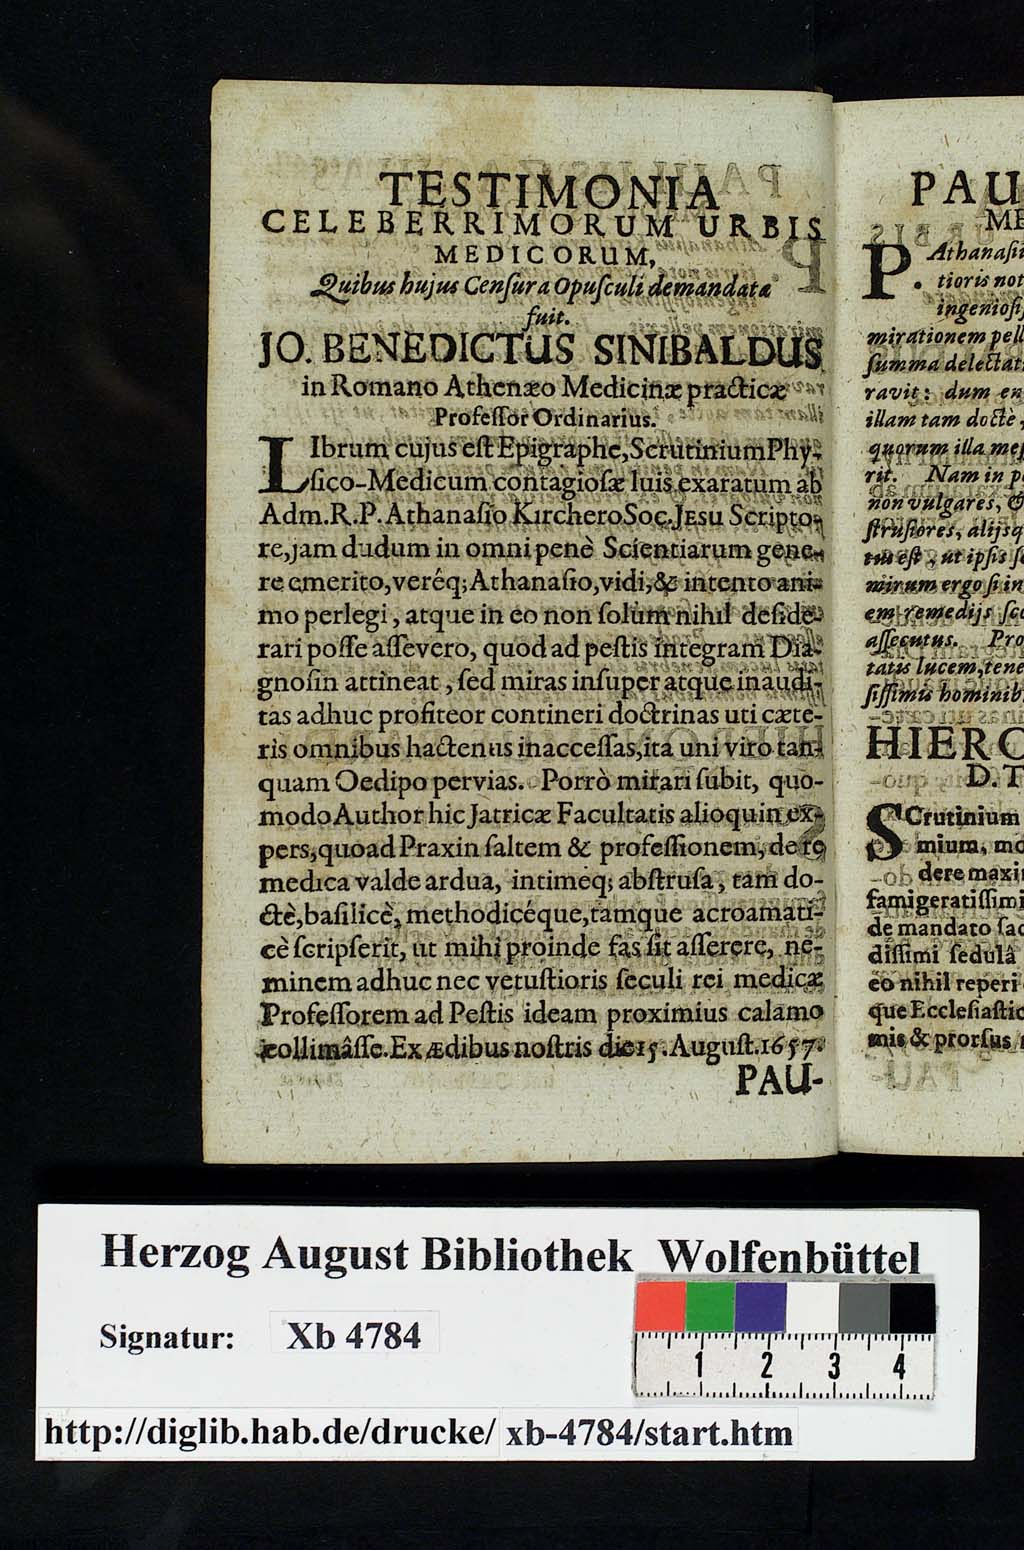 TESTIMONIA
CELEBERRIMORUM URBIS
MEDICORUM,
Quibus hujus Cenſura Opuſculi demandata
fuit.
JO. BENEDICTUS SINIBALDUS
in Romano Athenæo Medicinæ practicæ
Profeſſor Ordinarius.
LIbrum cujus eſt Epigraphe, Scrutinium Phy-
ſico-Medicum contagioſæ luis exaratum ab
Adm. R. P. Athanaſio Kirchero Soc. JESU Scripto-
re, jam dudum in omni penè Scientiarum gene-
re emerito, veréq; Athanaſio, vidi, & intento ani-
mo perlegi, atque in eo non ſolùm nihil deſide-
rari poſſe aſſevero, quod ad peſtis integram Dia-
gnoſin attineat, ſed miras inſuper atque inaudi-
tas adhuc profiteor contineri doctrinas uti cæte-
ris omnibus hactenus inacceſſas, ita uni viro tan-
quam Oedipo pervias. Porrò mirari ſubit, quo-
modo Author hic Jatricæ Facultatis alioquin ex-
pers, quoad Praxin ſaltem & profeſſionem, de re
medica valde ardua, intimeq; abſtruſa, tam do-
ctè, baſilicè, methodicéque, tamque acroamati-
cè ſcripſerit, ut mihi proinde fas ſit aſſerere, ne-
minem adhuc nec vetuſtioris ſeculi rei medicæ
Profeſſorem ad Peſtis ideam proximius calamo
collimâſſe. Ex ædibus noſtris die 15. Auguſt. 1657.
PAU-
PAU
ME
P. Athanaſii
tioris not
ingenioſiſ
mirationem pell
ſumma delectati
ravit: dum en
illam tam doctè,
quorum illa meſ
rit. Nam in p
non vulgares, &
ſtruſiores, alijsq
tus eſt, ut ipſis ſ
mirum ergo ſi in
em remedijs ſco
aſſecutus. Pro
tatis lucem, tene
ſiſſimis hominib
HIERO
D. T
SCrutinium
mium, mo
dere maxi
famigeratiſſimi
de mandato ſac
diſſimi ſedulâ
eo nihil reperi
que Eccleſiaſtic
mis & prorſus
Herzog August Bibliothek Wolfenbüttel
Signatur: Xb 4784
1 2 3 4
http://diglib.hab.de/drucke/ xb-4784/start.htm